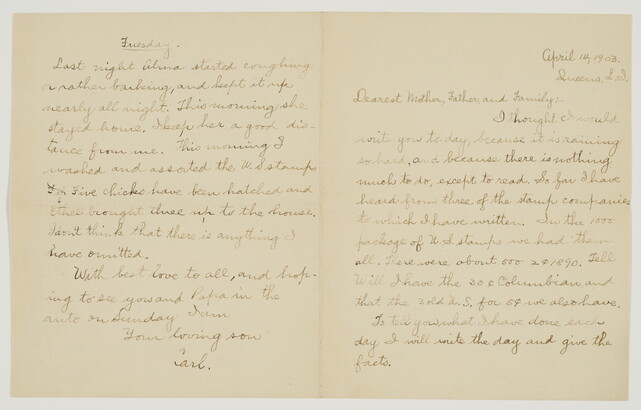 April 14, 1903.
Queens, L.I.
Dearest Mother, Father, and Family:-
I thought I would
write you to-day, because it is raining
so hard, and because there is nothing
much to do, except to read. So far I have
heard from three of the stamp companies
to which I have written. In the 1000
package of U.S stamps we had them
all. There were about 500 2¢ 1890. Tell
Will I have the 30¢ Columbian and
that the 2 old U.S. for 5¢ we also have.
To tell you what I have done each
day I will write the day and give the
facts.
Tuesday.
Last night Alma started coughing
or rather barking, and kept it up
nearly all night. This morning she
stayed home. I keep her a good dis-
tance from me. This morning I
washed and assorted the U.S stamps
Five chicks have been hatched and
brought three up to the house.
I don't think that there is anything I
have omitted.
With best love to all, and hop-
ing to see you and Papa in the
auto on Sunday I am
Your loving son
Carl.